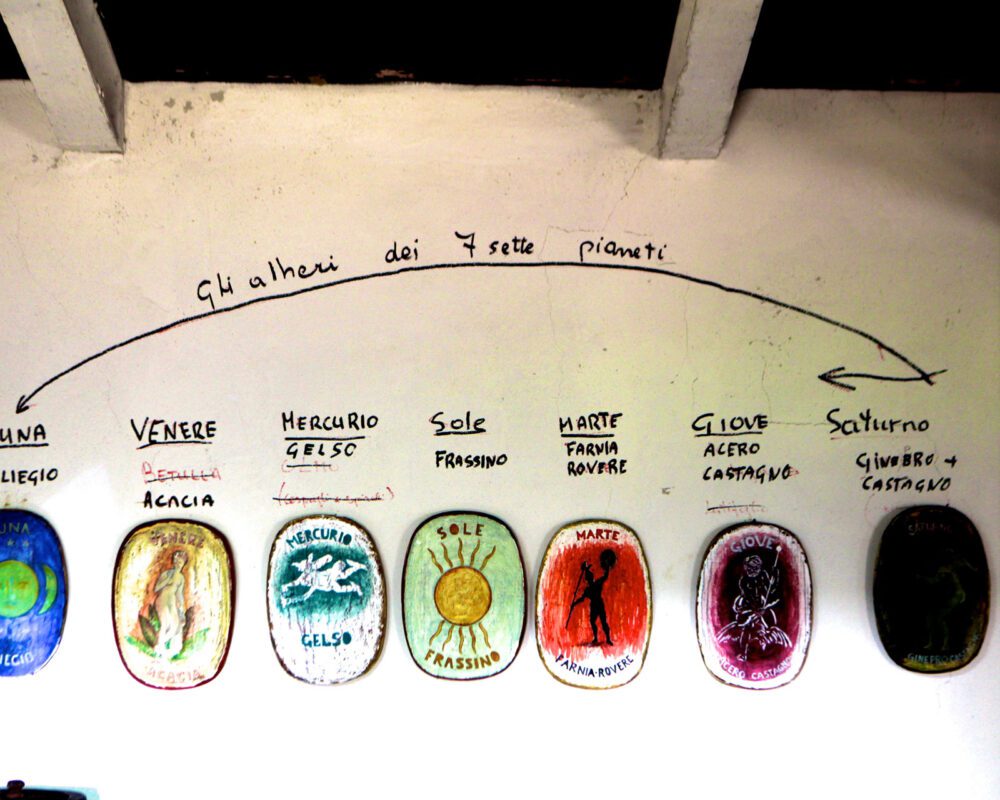 Gli alberi dei 7 sette pianeti
UNA
LIEGIO
VENERE
BETULLA
ACACIA
MERCURIO
GELSO
Sole
FRASSINO
MARTE
FARNIA
ROVERE
GIOVE
ACERO
CASTAGNO
Saturno
GINEBRO +
CASTAGNO
UNA
LIEGIO
VENERE
ACACIA
MERCURIO
GELSO
SOLE
FRASSINO
MARTE
FARNIA-ROVERE
GIOVE
ACERO CASTAGNO
SATURNO
GINEBRO CASTAGNO